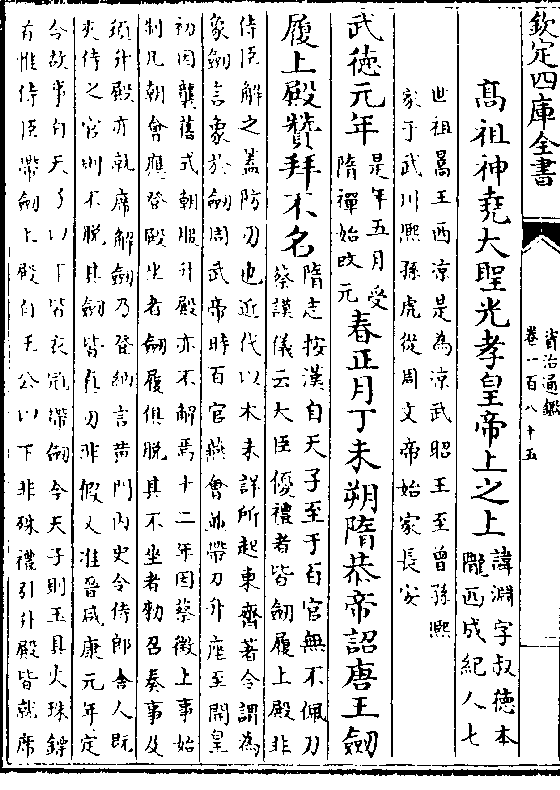 欽定四庫全書
資治通鑑
卷一百八十五
高祖神堯大聖光孝皇帝上之上
諱淵字叔德本
隴西成紀人七
世祖暠王西涼是為涼武昭王至曾孫熙
家于武川熙孫虎從周文帝始家長安
武徳元年
是年五月受
隋禪始改元
春正月丁未朔隋恭帝詔唐王劒
履上殿贊拜不名
隋志按漢自天子至于百官無不佩刀
蔡謨儀云大臣優禮者皆劒履上殿非
侍臣解之葢防刃也近代以木未詳所起東齊著令謂為
象劒言象於劒周武帝時百官燕會並帶刀升座至開皇
初因襲舊式朝服升殿亦不解焉十二年因蔡徴上事始
制凡朝會應登殿坐者劒履俱脫其不坐者勅召奏事及
須升殿亦就席解劒乃登納言黄門内史令侍郎舍人既
夾侍之官則不脫其劒皆真刃非假又准晉咸康元年定
令故事自天子以下皆衣冠帶劒今天子則玉具火珠鏢
首惟侍臣帶劒上殿自王公以下非殊禮引升殿皆就席